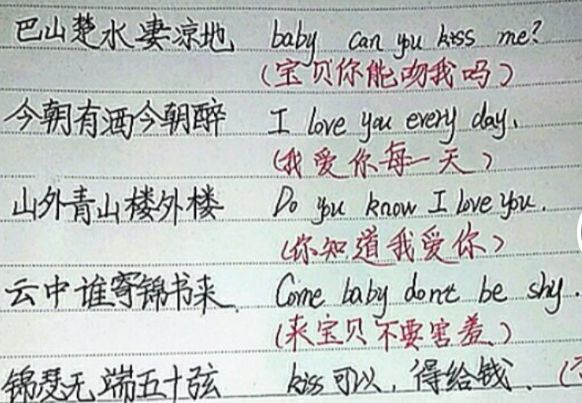 巴山楚水凄凉地 baby can you kiss me?
(宝贝你能吻我吗)
今朝有酒今朝醉 I love you every day.
(我爱你每一天)
山外青山楼外楼 Do you know I love you.
(你知道我爱你)
云中谁寄锦书来 Come baby dont be shy.
(来宝贝不要害羞)
锦瑟无端五十弦 kiss可以,得给钱.(